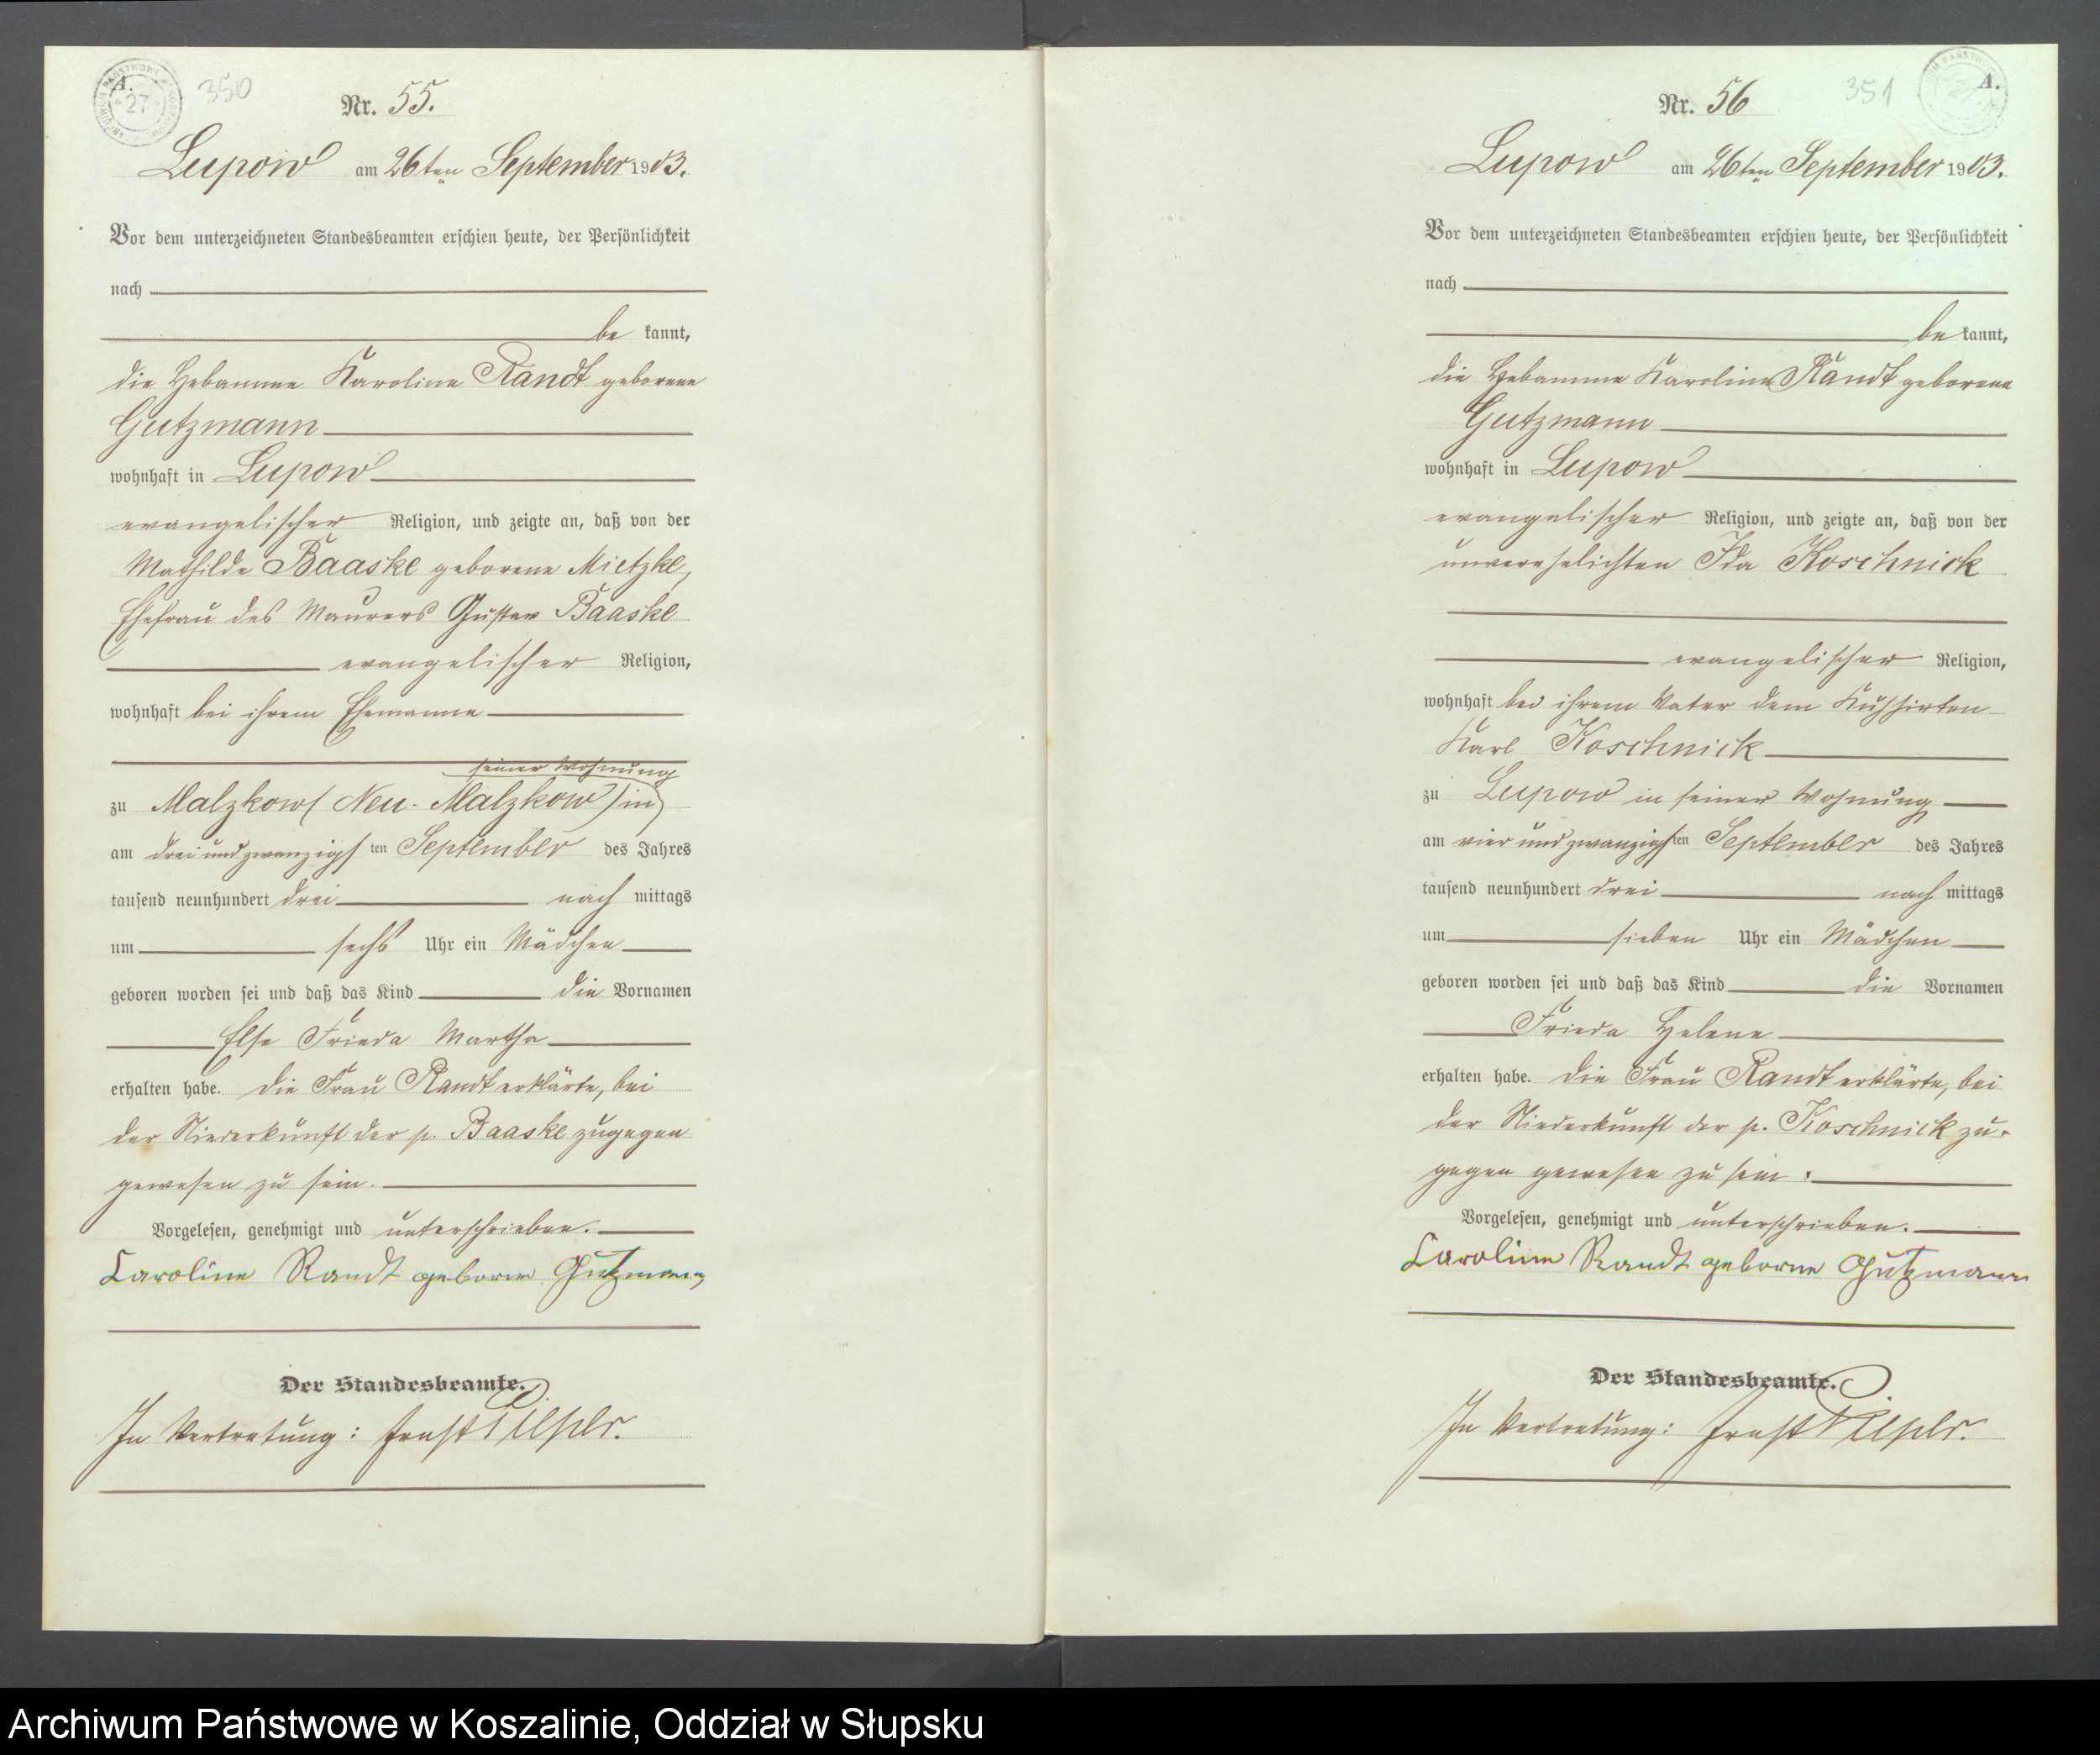 A.
350
Nr. 55.
Lupow am 26ten September 1903.
Vor dem unterzeichneten Standesbeamten erschien heute, der Persönlichkeit
nach
be kannt,
die Hebamme Karoline Randt geborene
Gutzmann
wohnhaft in Lupow
evangelischer Religion, und zeigte an, daß von der
Mathilde Baaske geborene Mietzke,
Ehefrau des Maurers Gustav Baaske
evangelischer Religion,
wohnhaft bei ihrem Ehemanne
seiner Wohnung
zu Malzkow (Neu-Malzkow) in
am drei und zwanzigsten September des Jahres
tausend neunhundert drei nach mittags
um sechs Uhr ein Mädchen
geboren worden sei und daß das Kind die Vornamen
Else Frieda Martha
erhalten habe. Die Frau Randt erklärte, bei
der Niederkunft der p. Baaske zugegen
gewesen zu sein.
Vorgelesen, genehmigt und unterschrieben.
Caroline Randt geborne Gutzmann
Der Standesbeamte.
In Vertretung: Ernst
351
A.
Nr. 56
Lupow am 26ten September 1903.
Vor dem unterzeichneten Standesbeamten erschien heute, der Persönlichkeit
nach
be kannt,
die Hebamme Karoline Randt geborene
Gutzmann
wohnhaft in Lupow
evangelischer Religion, und zeigte an, daß von der
unverehelichten Ida Koschnick
evangelischer Religion,
wohnhaft bei ihrem Vater dem Kuhhirten
Karl Koschnick
zu Lupow in seiner Wohnung
am vier und zwanzigsten September des Jahres
tausend neunhundert drei nach mittags
um sieben Uhr ein Mädchen
geboren worden sei und daß das Kind die Vornamen
Frieda Helene
erhalten habe. Die Frau Randt erklärte, bei
der Niederkunft der p. Koschnick zu-
gegen gewesen zu sein.
Vorgelesen, genehmigt und unterschrieben.
Caroline Randt geborne Gutzmann
Der Standesbeamte.
In Vertretung: Ernst
Archiwum Państwowe w Koszalinie, Oddział w Słupsku